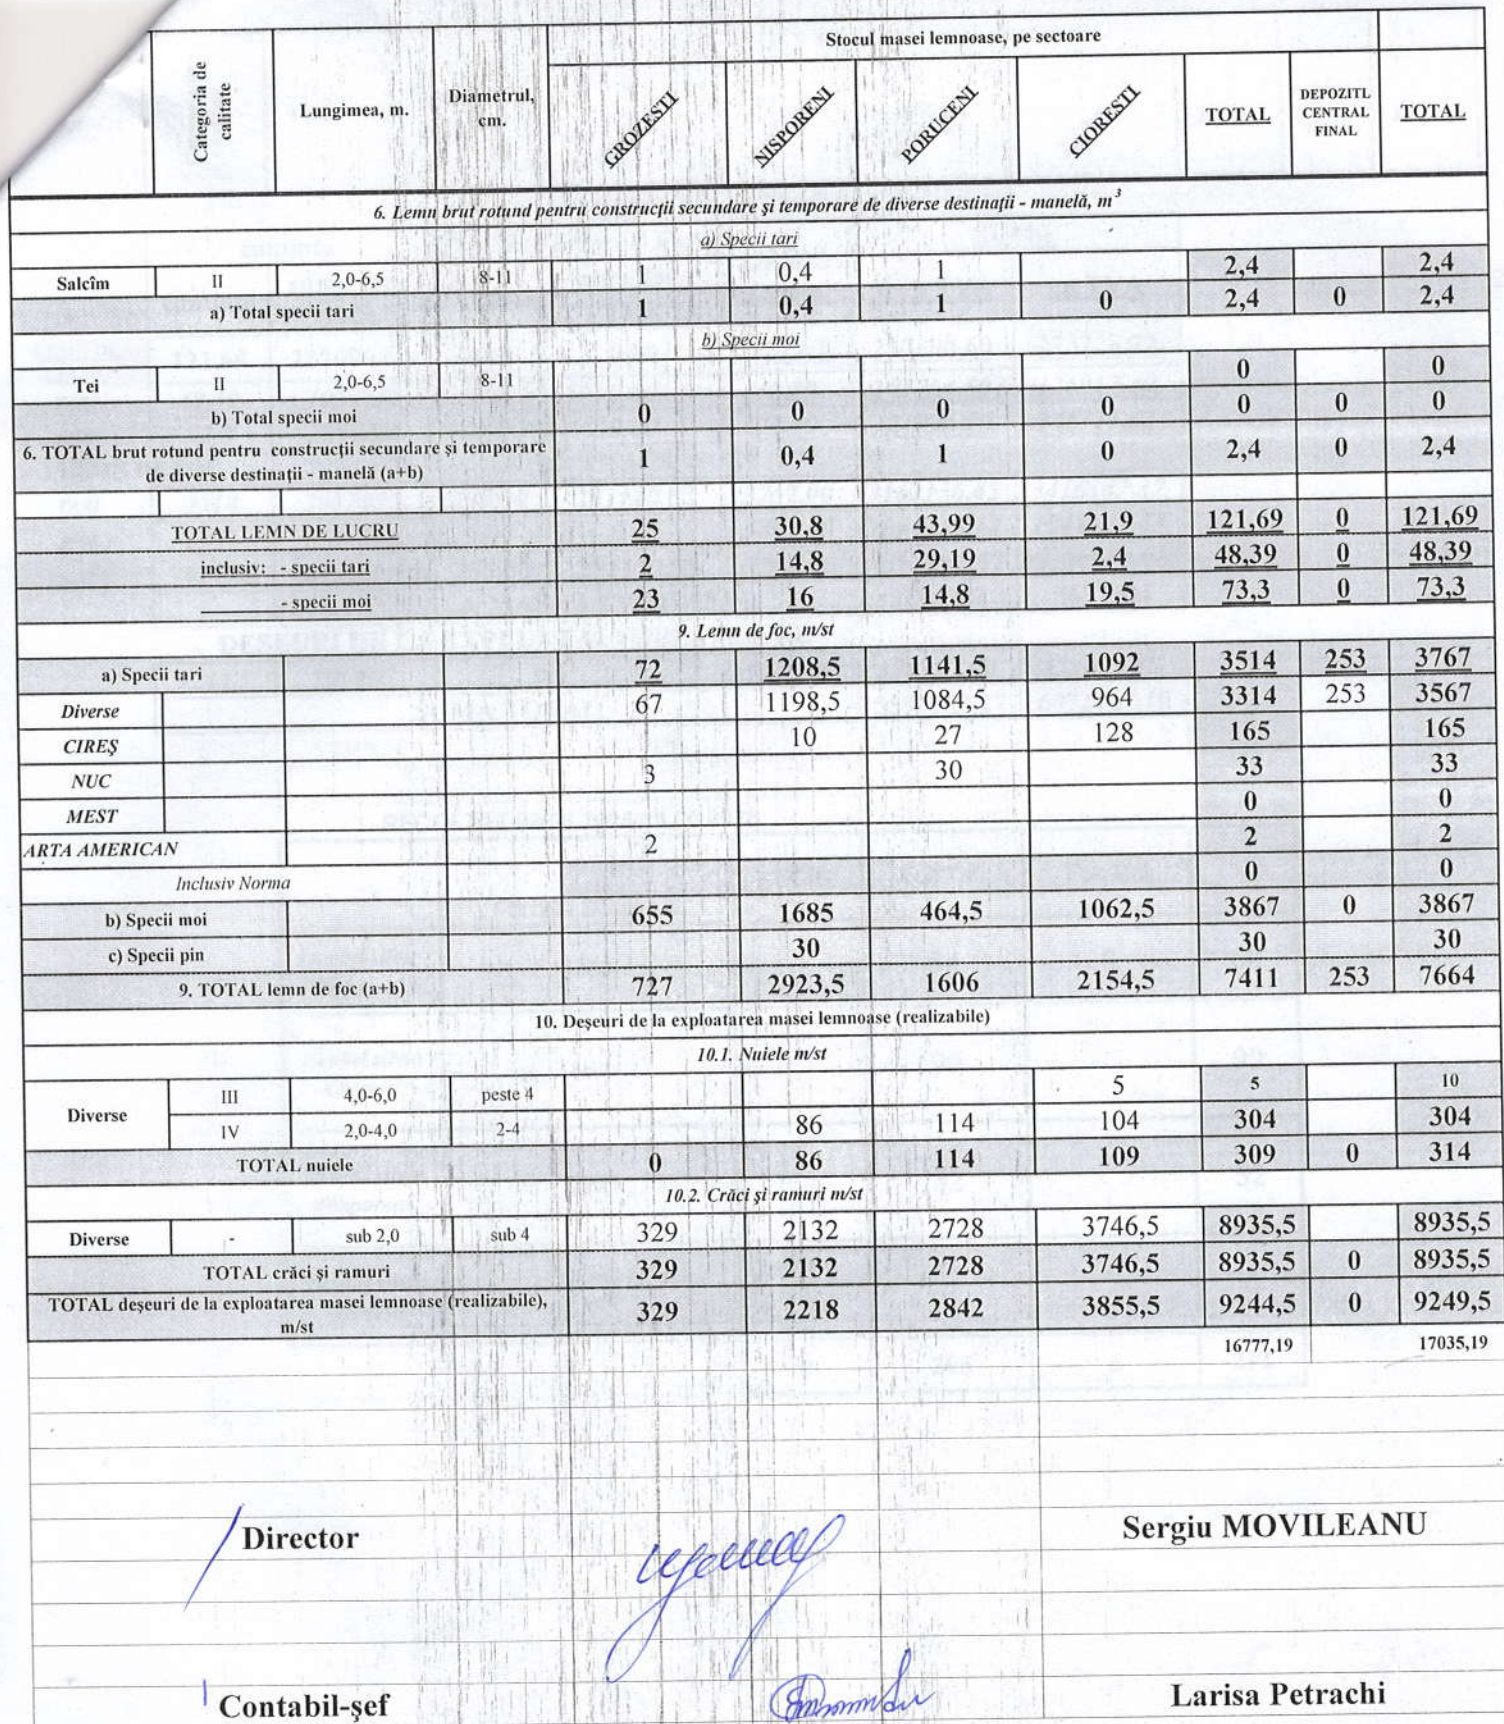 Stocul masei lemnoase, pe sectoare
Categoria de calitate | Lungimea, m. | Diametrul, cm. | GROZESTI | NISPORENI | PORUCENI | CIORESTI | TOTAL | DEPOZITL CENTRAL FINAL | TOTAL
6. Lemn brut rotund pentru construcții secundare și temporare de diverse destinații - manelă, m³
a) Specii tari
Salcîm | II | 2,0-6,5 | 8-11 | 1 | 0,4 | 1 | | 2,4 | | 2,4
a) Total specii tari | 1 | 0,4 | 1 | 0 | 2,4 | 0 | 2,4
b) Specii moi
Tei | II | 2,0-6,5 | 8-11 | | | | | 0 | | 0
b) Total specii moi | 0 | 0 | 0 | 0 | 0 | 0 | 0
6. TOTAL brut rotund pentru construcții secundare și temporare de diverse destinații - manelă (a+b) | 1 | 0,4 | 1 | 0 | 2,4 | 0 | 2,4
TOTAL LEMN DE LUCRU | 25 | 30,8 | 43,99 | 21,9 | 121,69 | 0 | 121,69
inclusiv: - specii tari | 2 | 14,8 | 29,19 | 2,4 | 48,39 | 0 | 48,39
- specii moi | 23 | 16 | 14,8 | 19,5 | 73,3 | 0 | 73,3
9. Lemn de foc, m/st
a) Specii tari | 72 | 1208,5 | 1141,5 | 1092 | 3514 | 253 | 3767
Diverse | 67 | 1198,5 | 1084,5 | 964 | 3314 | 253 | 3567
CIREȘ | | 10 | 27 | 128 | 165 | | 165
NUC | 3 | | 30 | | 33 | | 33
MEST | | | | | 0 | | 0
ARTA AMERICAN | 2 | | | | 2 | | 2
Inclusiv Norma | | | | | 0 | | 0
b) Specii moi | 655 | 1685 | 464,5 | 1062,5 | 3867 | 0 | 3867
c) Specii pin | | 30 | | | 30 | | 30
9. TOTAL lemn de foc (a+b) | 727 | 2923,5 | 1606 | 2154,5 | 7411 | 253 | 7664
10. Deșeuri de la exploatarea masei lemnoase (realizabile)
10.1. Nuiele m/st
Diverse | III | 4,0-6,0 | peste 4 | | | | 5 | 5 | | 10
IV | 2,0-4,0 | 2-4 | | 86 | 114 | 104 | 304 | | 304
TOTAL nuiele | 0 | 86 | 114 | 109 | 309 | 0 | 314
10.2. Crăci și ramuri m/st
Diverse | - | sub 2,0 | sub 4 | 329 | 2132 | 2728 | 3746,5 | 8935,5 | | 8935,5
TOTAL crăci și ramuri | 329 | 2132 | 2728 | 3746,5 | 8935,5 | 0 | 8935,5
TOTAL deșeuri de la exploatarea masei lemnoase (realizabile), m/st | 329 | 2218 | 2842 | 3855,5 | 9244,5 | 0 | 9249,5
16777,19 | | 17035,19
Director Sergiu MOVILEANU
Contabil-șef Larisa Petrachi